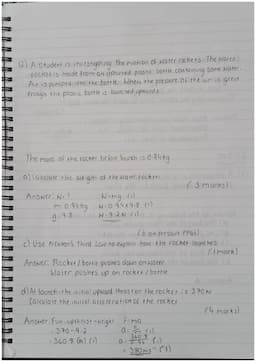 Q) A student is investigating the motion of water rockets. The water
rocket is made from an upturned plastic bottle containing some water.
Air is pumped into the bottle. When the pressure of the air is great
enough the plastic bottle is launched upwards.
The mass of the rocket before launch is 0.94kg
a) Calculate the weight of the water rocket.
(3 marks)
Answer: W=? W=mg (1)
m=0.94kg W=0.94×9.8 (1)
g=9.8 W=9.2N (1)
c) Use Newton's Third Law to explain how the rocket launches
(1 mark)
Answer: Rocket/bottle pushes down on water
Water pushes up on rocket/bottle
d) At launch the initial upward thrust on the rocket is 370N
Calculate the initial acceleration of the rocket
(4 marks)
Answer: Fun=upthrust-weight F=ma
=370-9.2
=360.8 (N) (1)